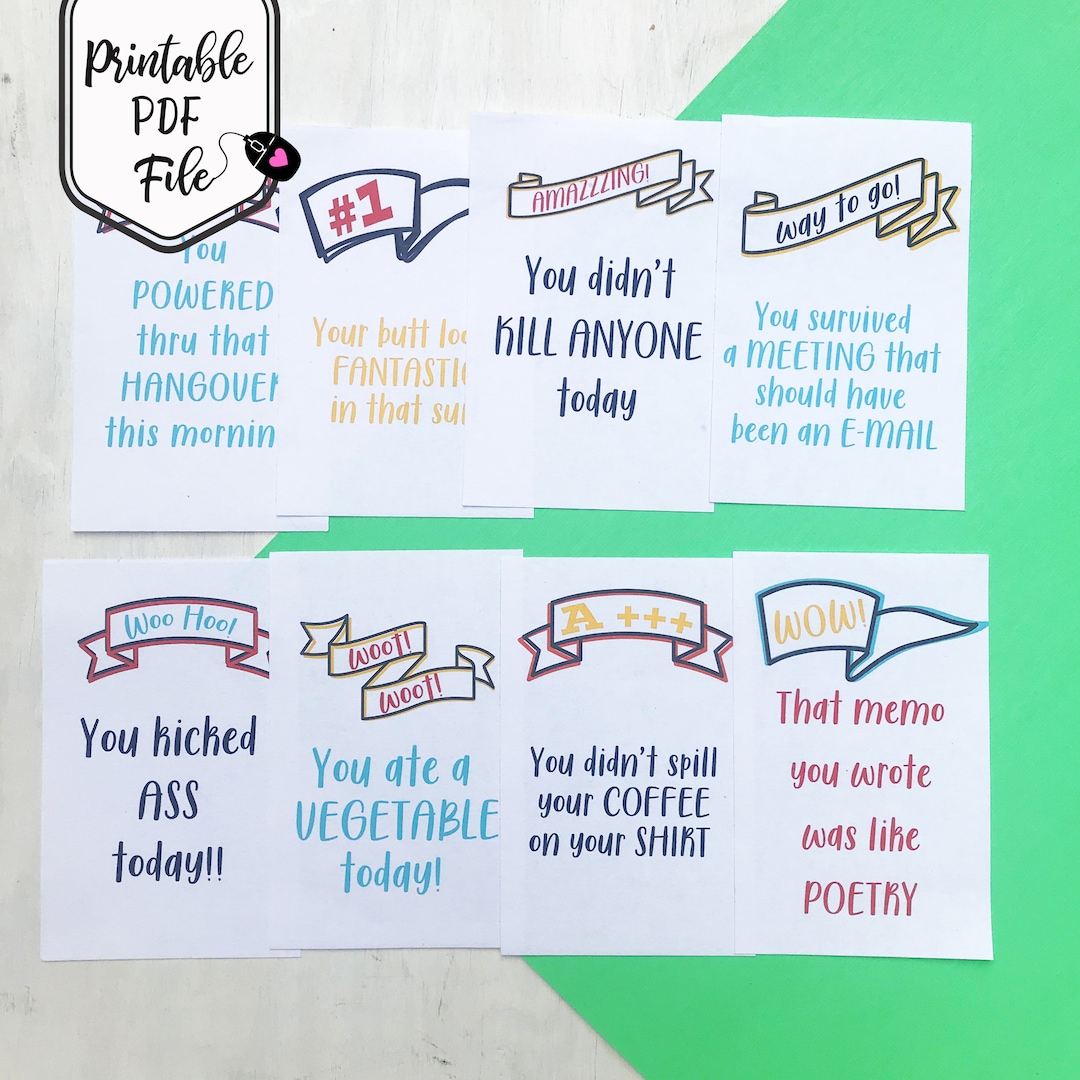 Printable
PDF
File
You
POWERED
thru that
HANGOVER
this mornin
#1
Your butt loo
FANTASTIC
in that sui
AMAZZZING!
You didn't
KILL ANYONE
today
way to go!
You survived
a MEETING that
should have
been an E-MAIL
Woo Hoo!
You kicked
ASS
today!!
Woot!
Woot!
You ate a
VEGETABLE
today!
A +++
You didn't spill
your COFFEE
on your SHIRT
WOW!
That memo
you wrote
was like
POETRY